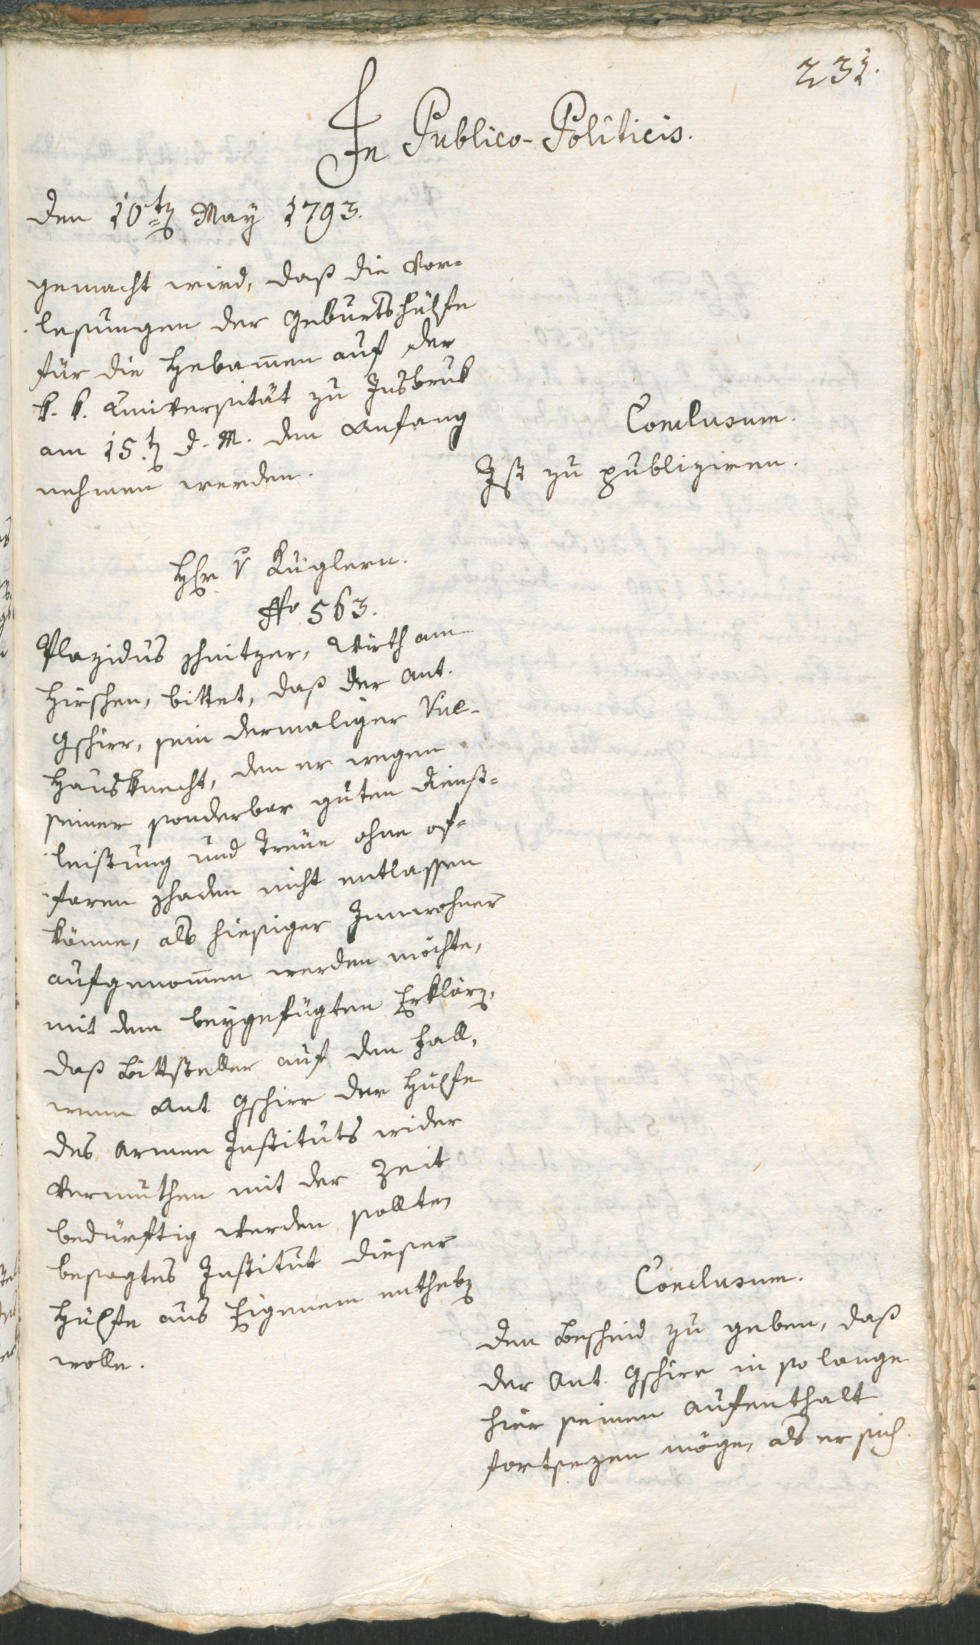 231.
In Publico-Politicis.
den 10t. May 1793.
gemacht wird, daß die Vor=
lesungen der Geburtshülfe
für die Hebam̄en auf der
k. k. Universität zu Insbruk
am 15.t d. M. den Anfang
nehmen werden.
Conclusum.
Ist zu publiziren.
Hr. v Kuglern.
No 563.
Plazidus Schnitzer, Würth am
Hirschen, bittet, daß der Ant.
Gschirr, sein dermaliger
Hausknecht, den er wegen
seiner sonderbar guten Dienst=
leistung und Treue ohne
Schaden nicht entlassen
könne, als hiesiger Innwohner
aufgenom̄en werden möchte,
mit dem beygefügten Erklärg,
daß Bittsteller auf den Fall,
wenn Ant Gschirr der Hülfe
des Armen Instituts wider
Vermuthen mit der Zeit
bedürftig werden sollte,
besagtes Institut dieser
Hülfe aus Eigenem entheben
wolle.
Conclusum.
Den Bescheid zu geben, daß
der Ant. Gschirr in so lange
hier seinen Aufenthalt
fortsezen möge, als er sich